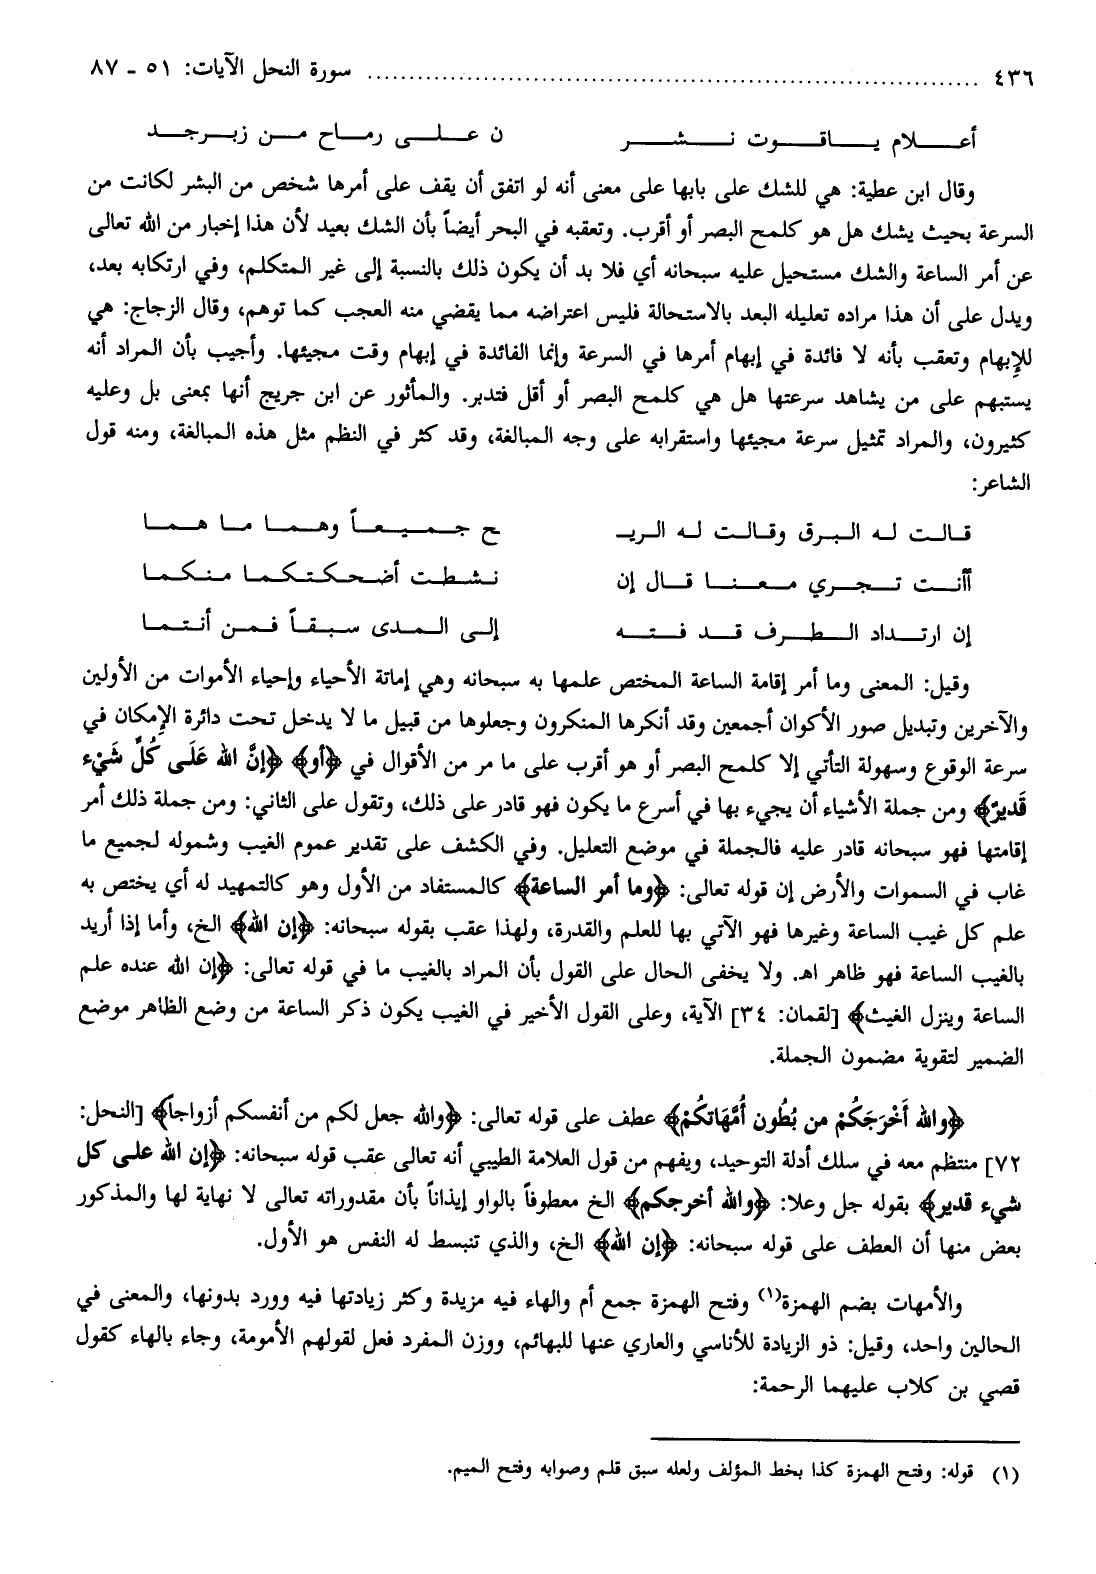 ٤٣٦ ........................ سورة النحل الآيات: ٥١ - ٨٧
أعـلام يـاقـوت نـشـر ن عـلـى رمـاح مـن زبـرجـد
وقال ابن عطية: هي للشك على بابها على معنى أنه لو اتفق أن يقف على أمرها شخص من البشر لكانت من
السرعة بحيث يشك هل هو كلمح البصر أو أقرب. وتعقبه في البحر أيضاً بأن الشك بعيد لأن هذا إخبار من الله تعالى
عن أمر الساعة والشك مستحيل عليه سبحانه أي فلا بد أن يكون ذلك بالنسبة إلى غير المتكلم، وفي ارتكابه بعد،
ويدل على أن هذا مراده تعليله البعد بالاستحالة فليس اعتراضه مما يقضي منه العجب كما توهم، وقال الزجاج: هي
للإبهام وتعقب بأنه لا فائدة في إبهام أمرها في السرعة وإنما الفائدة في إبهام وقت مجيئها. وأجيب بأن المراد أنه
يستبهم على من يشاهد سرعتها هل هي كلمح البصر أو أقل فتدبر. والمأثور عن ابن جريج أنها بمعنى بل وعليه
كثيرون، والمراد تمثيل سرعة مجيئها واستقرابه على وجه المبالغة، وقد كثر في النظم مثل هذه المبالغة، ومنه قول
الشاعر:
قـالـت لـه الـبـرق وقـالـت لـه الـريـ ـح جـمـيـعـاً وهـمـا مـا هـمـا
أأنـت تـجـري مـعـنـا قـال إن نـشـطـت أضـحـكـتـكـمـا مـنـكـمـا
إن ارتـداد الـطـرف قـد فـتـه إلـى الـمـدى سـبـقـاً فـمـن أنـتـمـا
وقيل: المعنى وما أمر إقامة الساعة المختص علمها به سبحانه وهي إماتة الأحياء وإحياء الأموات من الأولين
والآخرين وتبديل صور الأكوان أجمعين وقد أنكرها المنكرون وجعلوها من قبيل ما لا يدخل تحت دائرة الإمكان في
سرعة الوقوع وسهولة التأتي إلا كلمح البصر أو هو أقرب على ما مر من الأقوال في ﴿أو﴾ ﴿إنَّ الله عَلَى كُلِّ شَيْء
قَديرٌ﴾ ومن جملة الأشياء أن يجيء بها في أسرع ما يكون فهو قادر على ذلك، وتقول على الثاني: ومن جملة ذلك أمر
إقامتها فهو سبحانه قادر عليه فالجملة في موضع التعليل. وفي الكشف على تقدير عموم الغيب وشموله لجميع ما
غاب في السموات والأرض إن قوله تعالى: ﴿وما أمر الساعة﴾ كالمستفاد من الأول وهو كالتمهيد له أي يختص به
علم كل غيب الساعة وغيرها فهو الآتي بها للعلم والقدرة، ولهذا عقب بقوله سبحانه: ﴿إن الله﴾ الخ، وأما إذا أريد
بالغيب الساعة فهو ظاهر اهـ. ولا يخفى الحال على القول بأن المراد بالغيب ما في قوله تعالى: ﴿إن الله عنده علم
الساعة وينزل الغيث﴾ [لقمان: ٣٤] الآية، وعلى القول الأخير في الغيب يكون ذكر الساعة من وضع الظاهر موضع
الضمير لتقوية مضمون الجملة.
﴿والله أَخْرَجَكُمْ من بُطُون أُمَّهَاتكُمْ﴾ عطف على قوله تعالى: ﴿والله جعل لكم من أنفسكم أزواجاً﴾ [النحل:
٧٢] منتظم معه في سلك أدلة التوحيد، ويفهم من قول العلامة الطيبي أنه تعالى عقب قوله سبحانه: ﴿إن الله على كل
شيء قدير﴾ بقوله جل وعلا: ﴿والله أخرجكم﴾ الخ معطوفاً بالواو إيذاناً بأن مقدوراته تعالى لا نهاية لها والمذكور
بعض منها أن العطف على قوله سبحانه: ﴿إن الله﴾ الخ، والذي تنبسط له النفس هو الأول.
والأمهات بضم الهمزة(١) وفتح الهمزة جمع أم والهاء فيه مزيدة وكثر زيادتها فيه وورد بدونها، والمعنى في
الحالين واحد، وقيل: ذو الزيادة للأناسي والعاري عنها للبهائم، ووزن المفرد فعل لقولهم الأمومة، وجاء بالهاء كقول
قصي بن كلاب عليهما الرحمة:
(١) قوله: وفتح الهمزة كذا بخط المؤلف ولعله سبق قلم وصوابه وفتح الميم.